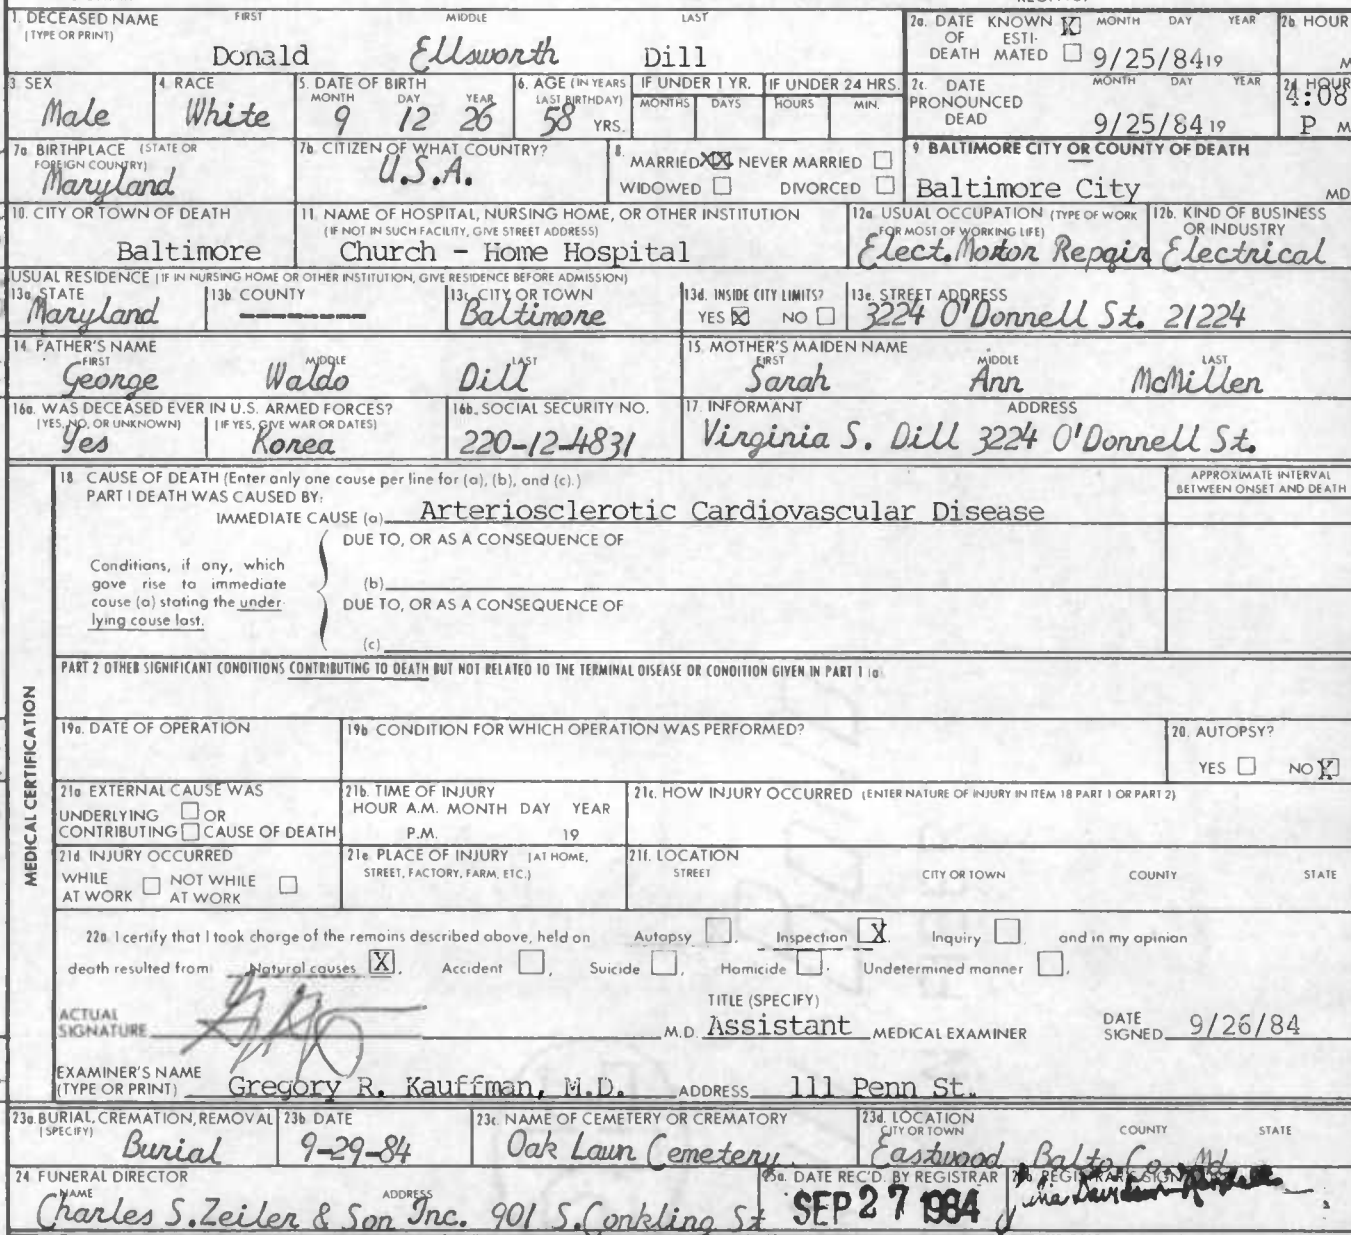 1. DECEASED NAME FIRST MIDDLE LAST
(TYPE OR PRINT)
Donald Ellsworth Dill
2a. DATE KNOWN X MONTH DAY YEAR
OF ESTI-
DEATH MATED 9/25/84 19
2b. HOUR
M
3. SEX
Male
4. RACE
White
5. DATE OF BIRTH
MONTH DAY YEAR
9 12 26
6. AGE (IN YEARS
LAST BIRTHDAY)
58 YRS.
IF UNDER 1 YR.
MONTHS DAYS
IF UNDER 24 HRS.
HOURS MIN.
2c. DATE MONTH DAY YEAR
PRONOUNCED
DEAD 9/25/84 19
2d HOUR
4:08
P M
7a BIRTHPLACE (STATE OR
FOREIGN COUNTRY)
Maryland
7b. CITIZEN OF WHAT COUNTRY?
U.S.A.
8. MARRIED XX NEVER MARRIED
WIDOWED DIVORCED
9 BALTIMORE CITY OR COUNTY OF DEATH
Baltimore City MD
10. CITY OR TOWN OF DEATH
Baltimore
11. NAME OF HOSPITAL, NURSING HOME, OR OTHER INSTITUTION
(IF NOT IN SUCH FACILITY, GIVE STREET ADDRESS)
Church - Home Hospital
12a USUAL OCCUPATION (TYPE OF WORK
FOR MOST OF WORKING LIFE)
Elect. Motor Repair
12b. KIND OF BUSINESS
OR INDUSTRY
Electrical
USUAL RESIDENCE (IF IN NURSING HOME OR OTHER INSTITUTION, GIVE RESIDENCE BEFORE ADMISSION)
13a. STATE
Maryland
13b. COUNTY
----------
13c. CITY OR TOWN
Baltimore
13d. INSIDE CITY LIMITS?
YES X NO
13e. STREET ADDRESS
3224 O'Donnell St. 21224
14. FATHER'S NAME
FIRST MIDDLE LAST
George Waldo Dill
15. MOTHER'S MAIDEN NAME
FIRST MIDDLE LAST
Sarah Ann McMillen
16a. WAS DECEASED EVER IN U.S. ARMED FORCES?
(YES, NO, OR UNKNOWN) (IF YES, GIVE WAR OR DATES)
Yes Korea
16b. SOCIAL SECURITY NO.
220-12-4831
17. INFORMANT ADDRESS
Virginia S. Dill 3224 O'Donnell St.
MEDICAL CERTIFICATION
18 CAUSE OF DEATH (Enter only one cause per line for (a), (b), and (c).)
PART I DEATH WAS CAUSED BY:
IMMEDIATE CAUSE (a) Arteriosclerotic Cardiovascular Disease
APPROXIMATE INTERVAL
BETWEEN ONSET AND DEATH
DUE TO, OR AS A CONSEQUENCE OF
Conditions, if any, which
gave rise to immediate
cause (a) stating the under-
lying cause last.
(b)
DUE TO, OR AS A CONSEQUENCE OF
(c)
PART 2 OTHER SIGNIFICANT CONDITIONS CONTRIBUTING TO DEATH BUT NOT RELATED TO THE TERMINAL DISEASE OR CONDITION GIVEN IN PART 1 (a)
19a. DATE OF OPERATION
19b CONDITION FOR WHICH OPERATION WAS PERFORMED?
20. AUTOPSY?
YES NO X
21a EXTERNAL CAUSE WAS
UNDERLYING OR
CONTRIBUTING CAUSE OF DEATH
21b. TIME OF INJURY
HOUR A.M. MONTH DAY YEAR
P.M. 19
21c. HOW INJURY OCCURRED (ENTER NATURE OF INJURY IN ITEM 18 PART 1 OR PART 2)
21d INJURY OCCURRED
WHILE AT WORK NOT WHILE AT WORK
21e PLACE OF INJURY (AT HOME,
STREET, FACTORY, FARM, ETC.)
21f. LOCATION
STREET CITY OR TOWN COUNTY STATE
22a I certify that I took charge of the remains described above, held an Autopsy , Inspection X, Inquiry , and in my opinion
death resulted from Natural causes X, Accident , Suicide , Homicide . Undetermined manner .
ACTUAL
SIGNATURE M.D.
TITLE (SPECIFY)
Assistant MEDICAL EXAMINER
DATE
SIGNED 9/26/84
EXAMINER'S NAME
(TYPE OR PRINT) Gregory R. Kauffman, M.D. ADDRESS 111 Penn St.
23a. BURIAL, CREMATION, REMOVAL
(SPECIFY)
Burial
23b DATE
9-29-84
23c. NAME OF CEMETERY OR CREMATORY
Oak Lawn Cemetery
23d. LOCATION
CITY OR TOWN COUNTY STATE
Eastwood Balto Co. Md
24 FUNERAL DIRECTOR
NAME ADDRESS
Charles S. Zeiler & Son Inc. 901 S. Conkling St
25a. DATE REC'D. BY REGISTRAR
SEP 27 1984
REGISTRAR'S SIGN